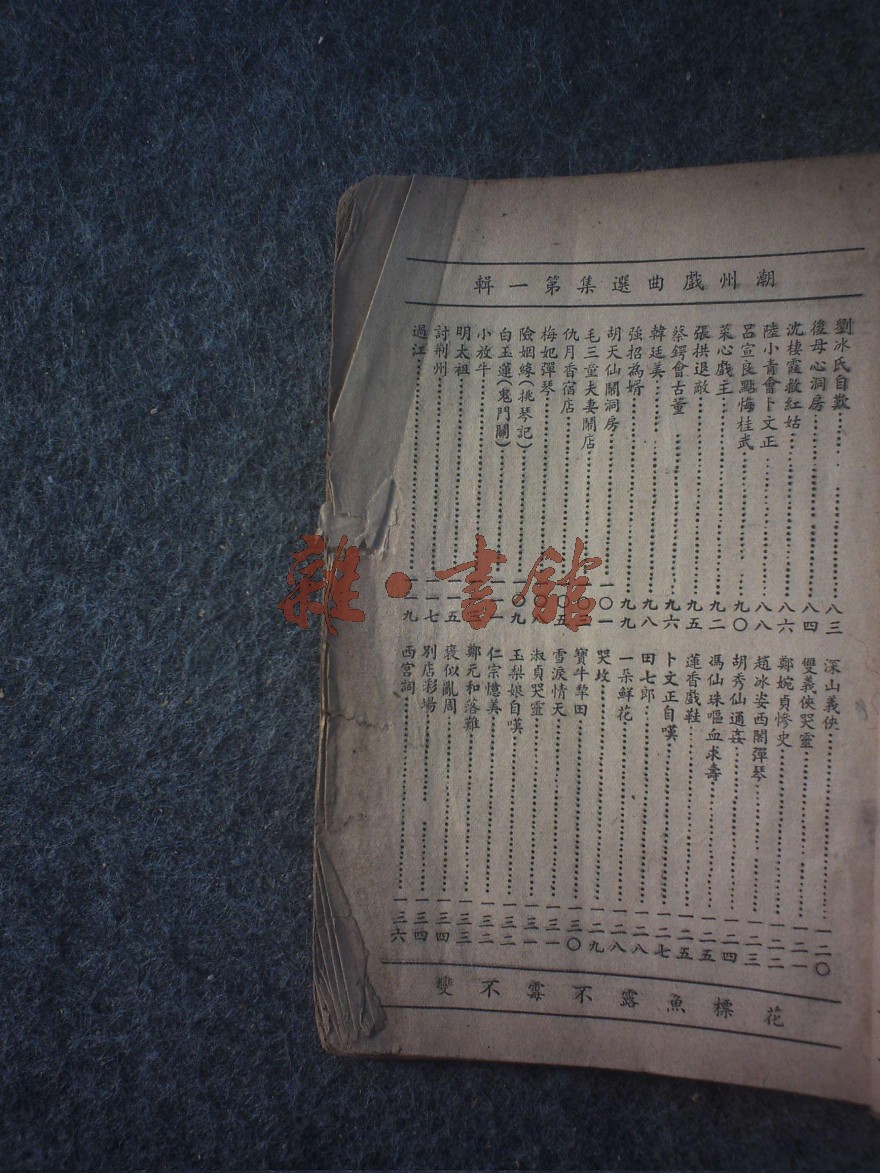 潮州戲曲選集第一輯
劉冰氏自歎……八三
後母心洞房……八四
沈棲霞救紅姑……八六
陸小青會卜文正……八八
呂宣良點悔桂武……九〇
菜心戲主……九二
張拱退敵……九五
蔡鍔會古董……九六
韓廷美……九八
強招為婿……九九
胡天仙鬧洞房……一〇一
毛三童夫妻鬧店
仇月香宿店
梅妃彈琴
險姻緣(挑琴記)
白玉蓮(鬼門關)
小放牛
明太祖
討荆州……一一七
過江……一一九
深山義俠……一二〇
雙義俠哭靈……一二一
鄭婉貞慘史……一二二
趙冰姿西閣彈琴……一二三
胡秀仙通姦……一二四
馮仙珠嘔血求壽……一二五
蓮香戲鞋……一二五
卜文正自嘆……一二七
田七郎……一二八
一朵鮮花……一二八
哭坟……一二九
寶牛犂田……一三〇
雪淚情天……一三一
淑貞哭靈……一三一
玉梨娘自嘆……一三二
仁宗憶美……一三二
鄭元和落難……一三三
褒似亂周……一三四
別店彩場……一三四
西宮詞……一三六
花標魚露不霉不變
雜·書館